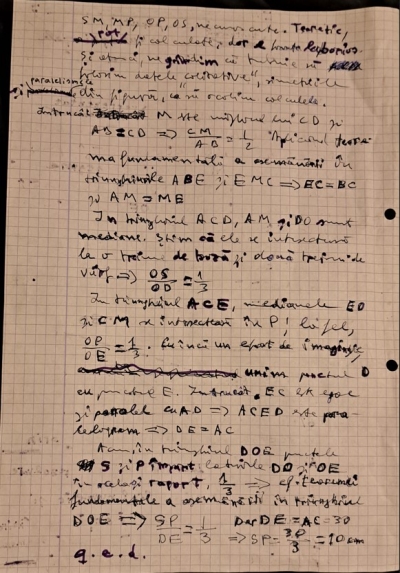 SM, MP, OP, OS, necunoscute. Teoretic,
pot fi calculate, dar e treaba laborioasă.
Și atunci, ne gândim că trebuie să
folosim datele calitative", simetriile
și paralelismele din figură, ca să ocolim calculele.
Întrucât M este mijlocul lui CD și
AB≡CD ⇒ CM/AB = 1/2 Aplicând teore-
ma fundamentală a asemănării în
triunghiurile ABE și EMC ⇒ EC=BC
și AM=ME
În triunghiul ACD, AM și DO sunt
mediane. Știm că ele se intersectează
la o treime de bază și două treimi de
vârf ⇒ OS/OD = 1/3
În triunghiul ACE, medianele EO
și CM se intersectează în P; la fel,
OP/OE = 1/3. Cu încă un efort de imaginație
unim punctul D
cu punctul E. Întrucât EC este egal
și paralel cu AD ⇒ ACED este para-
lelogram ⇒ DE=AC
Acum, în triunghiul DOE punctele
S și P împart laturile DO și OE
în același raport, 1/3 ⇒ cf. teoremei
fundamentale a asemănării în triunghiul
DOE ⇒ SP/DE = 1/3 Dar DE=AC=30
⇒ SP= 30/3 = 10 cm
q.e.d.